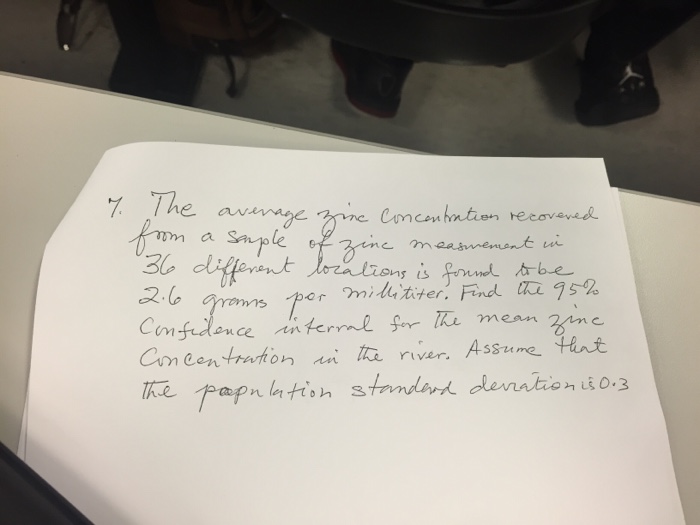 7. The average zinc Concentration recovered
from a sample of zinc measurement in
36 different locations is found to be
2.6 grams per millititer. Find the 95%
Confidence interval for the mean zinc
Concentration in the river. Assume that
the population standard deviation is 0.3